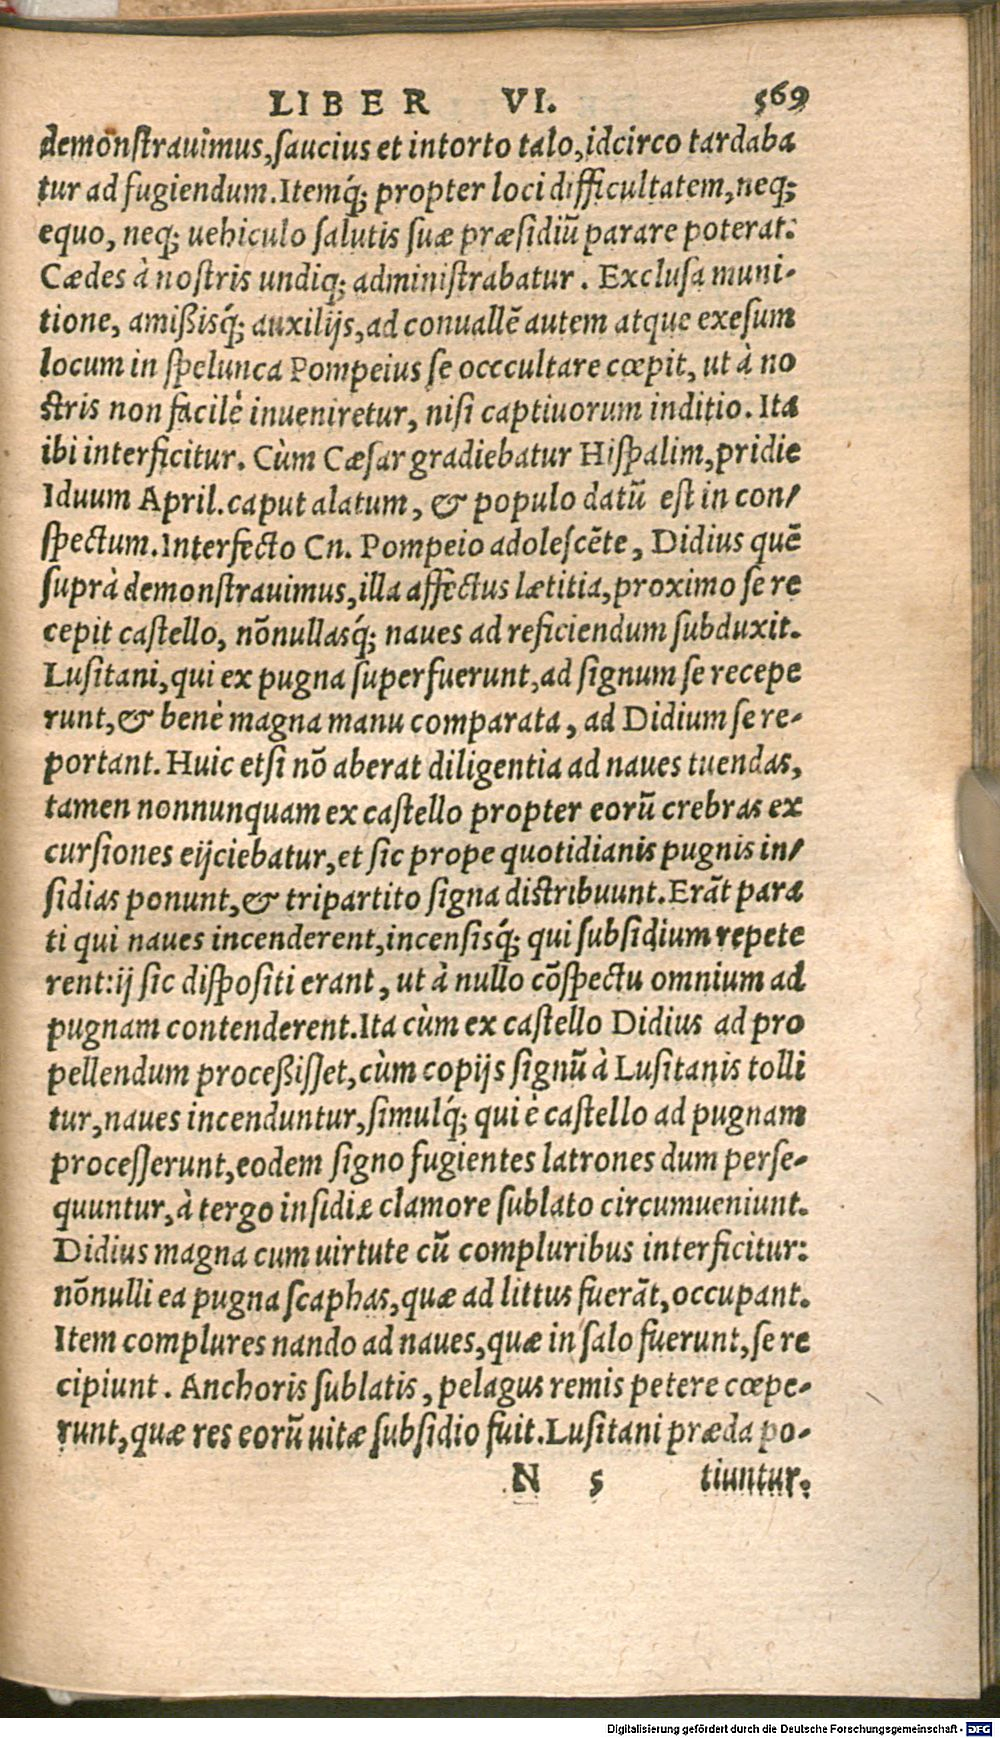 LIBER VI. 569
demonſtrauimus,ſaucius et intorto talo,idcirco tardaba
tur ad fugiendum.Itemq́; propter loci difficultatem,neq;
equo, neq; uehiculo ſalutis ſuæ præſidiũ parare poterat:
Cædes à noſtris undiq; adminiſtrabatur. Excluſa muni-
tione, amißisq́; auxilijs,ad conuallẽ autem atque exeſum
locum in ſpelunca Pompeius ſe occcultare cœpit, ut à no
ſtris non facilè inueniretur, niſi captiuorum inditio. Ita
ibi interficitur. Cùm Cæſar gradiebatur Hiſpalim,pridie
Iduum April.caput alatum, & populo datũ eſt in con/
ſpectum.Interfecto Cn. Pompeio adoleſcẽte, Didius quẽ
ſuprà demonſtrauimus,illa affectus lætitia,proximo ſe re
cepit caſtello, nõnullasq́; naues ad reficiendum ſubduxit.
Luſitani,qui ex pugna ſuperfuerunt,ad ſignum ſe recepe
runt,& benè magna manu comparata, ad Didium ſe re-
portant. Huic etſi nõ aberat diligentia ad naues tuendas,
tamen nonnunquam ex caſtello propter eorũ crebras ex
curſiones eijciebatur,et ſic prope quotidianis pugnis in/
ſidias ponunt,& tripartito ſigna diſtribuunt.Erãt para
ti qui naues incenderent,incenſisq́; qui ſubſidium repete
rent:ij ſic diſpoſiti erant, ut à nullo cõſpectu omnium ad
pugnam contenderent.Ita cùm ex caſtello Didius ad pro
pellendum proceßiſſet,cùm copijs ſignũ à Luſitanis tolli
tur,naues incenduntur,ſimulq́; qui è caſtello ad pugnam
proceſſerunt,eodem ſigno fugientes latrones dum perſe-
quuntur,à tergo inſidiæ clamore ſublato circumueniunt.
Didius magna cum uirtute cũ compluribus interficitur:
nõnulli ea pugna ſcaphas,quæ ad littus fuerãt,occupant.
Item complures nando ad naues,quæ in ſalo fuerunt,ſe re
cipiunt. Anchoris ſublatis, pelagus remis petere cœpe-
runt,quæ res eorũ uitæ ſubſidio fuit.Luſitani præda po-
N 5 tiuntur.
Digitalisierung gefördert durch die Deutsche Forschungsgemeinschaft - DFG